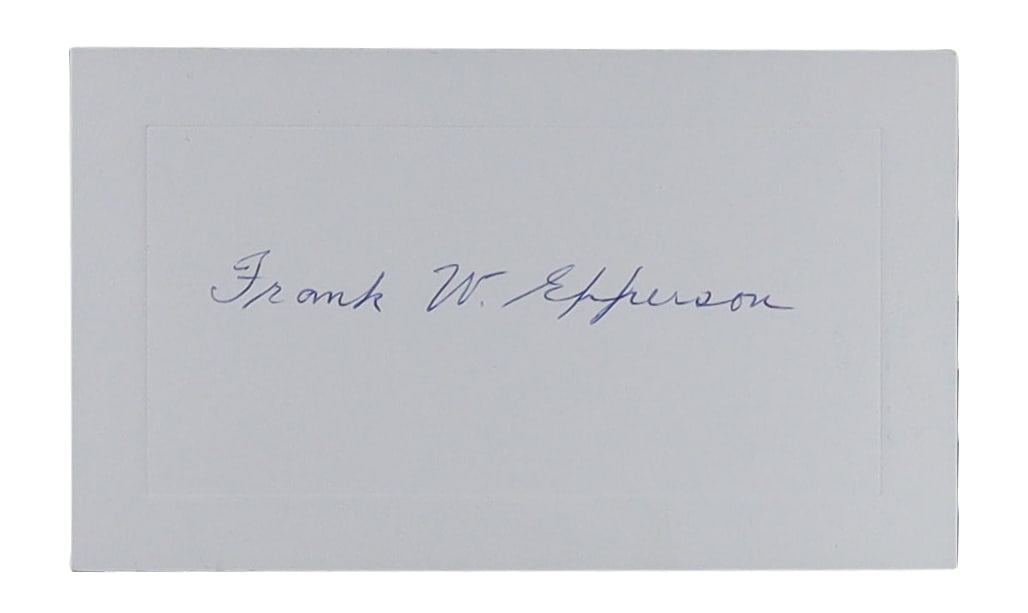 Frank W. Epperson